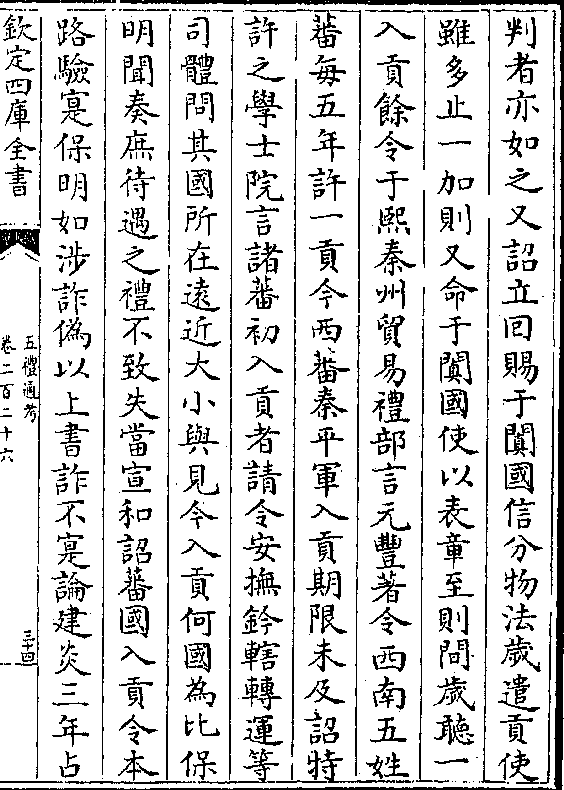 判者亦如之又詔立回賜于闐國信分物法歲遣貢使
雖多止一加則又命于闐國使以表章至則間歲聽一
入貢餘令于熙秦州貿易禮部言元豐著令西南五姓
蕃每五年許一貢今西蕃秦平軍入貢期限未及詔特
許之學士院言諸蕃初入貢者請令安撫鈐轄轉運等
司體問其國所在遠近大小與見今入貢何國為比保
明聞奏庶待遇之禮不致失當宣和詔蕃國入貢令本
路驗寔保明如涉詐偽以上書詐不寔論建炎三年占
欽定四庫全書
五禮通考
卷二百二十六
三十四